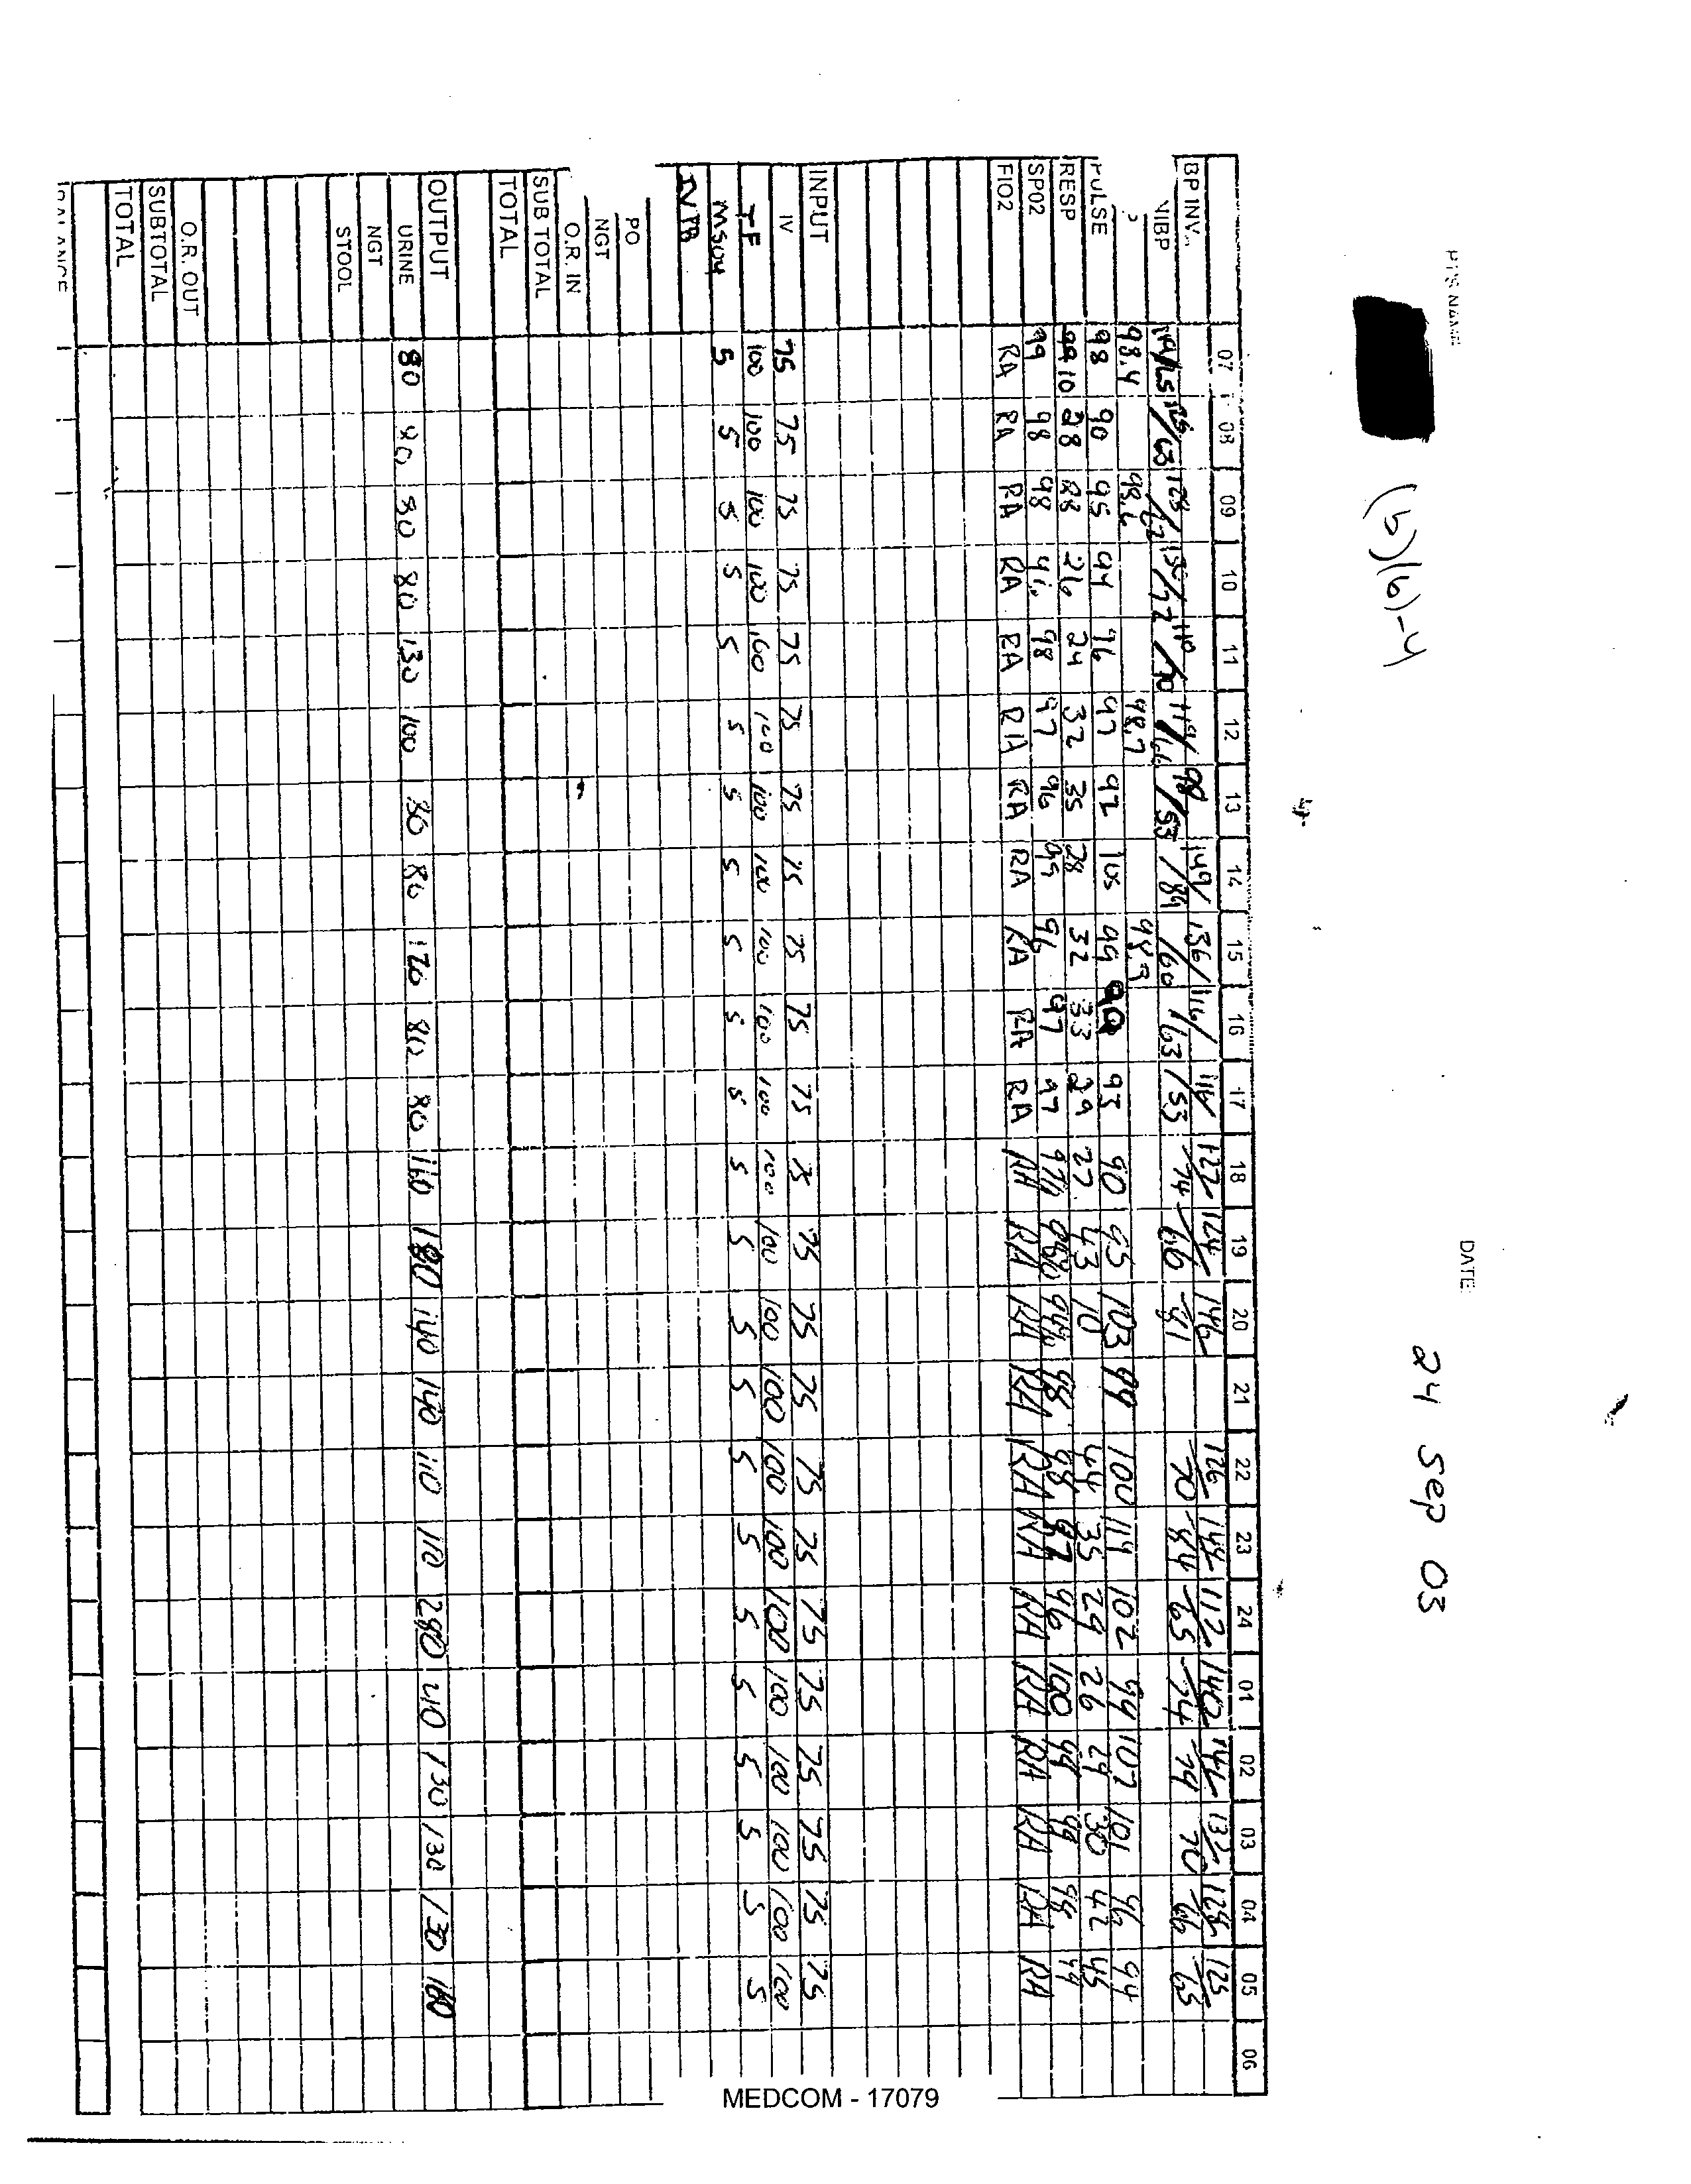 PTS NAME
(b)(6)-4
DATE
24 Sep 03
07 08 09 10 11 12 13 14 15 16 17 18 19 20 21 22 23 24 01 02 03 04 05 06
BP INV. 149/ 136/ 116/ 114/ 122/ 124/ 146/ 126/ 144/ 112/ 140/ 144/ 137/ 128/ 125/
NIBP /63 /53 /84 /60 /63 /53 74 66 81 70 84 65 74 79 70 66 63
98.4 98.6 98.7 98.9
PULSE 98 90 95 94 96 97 92 105 99 90 93 90 95 103 99 100 114 102 94 107 101 96 94
RESP 10 28 28 26 24 32 35 28 32 33 29 27 43 10 44 35 29 26 29 30 42 45
SPO2 99 98 98 98 97 96 99 96 97 97 97% 98% 94% 98 98 97 96 100 99 99 98 99
FIO2 RA RA RA RA RA RA RA RA RA RA RA RA RA RA RA RA RA RA RA RA RA RA RA
INPUT
IV 75 75 75 75 75 75 75 75 75 75 75 75 75 75 75 75 75 75 75 75 75 75 75
TF 100 100 100 100 100 100 100 100 100 100 100 100 100 100 100 100 100 100 100 100 100 100 100
MSO4 5 5 5 5 5 5 5 5 5 5 5 5 5 5 5 5 5 5 5 5 5 5 5
IVPB
PO
NGT
O.R. IN
SUB TOTAL
TOTAL
OUTPUT
URINE 80 80 80 80 130 100 80 80 120 80 80 110 180 140 140 110 110 280 110 130 130 130 160
NGT
STOOL
O.R. OUT
SUBTOTAL
TOTAL
BALANCE
MEDCOM - 17079